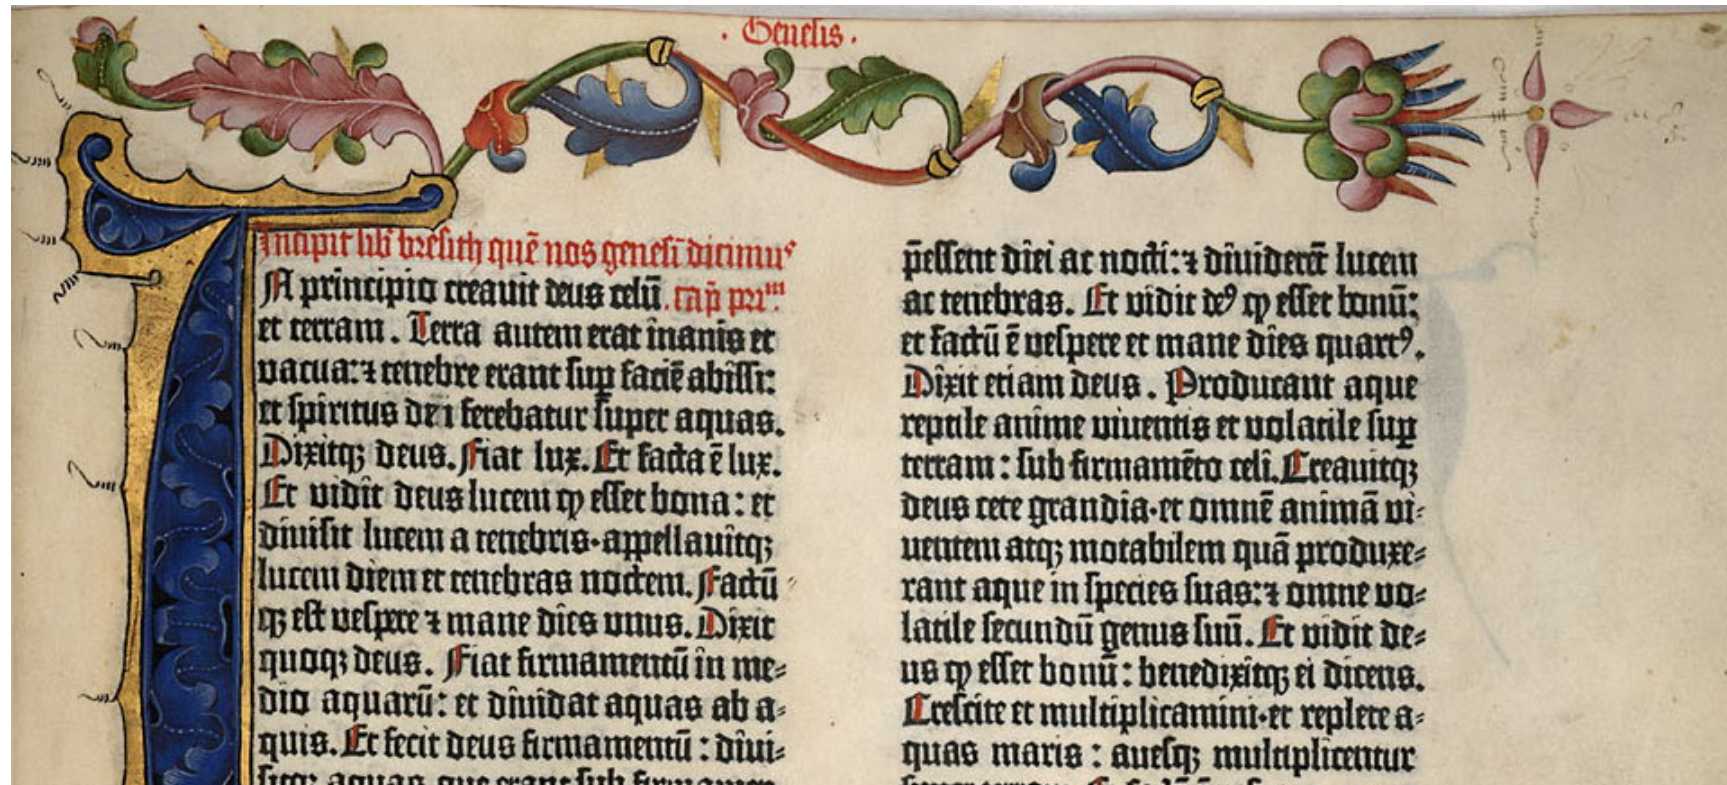 · Genesis ·
Incipit lib̄ bresith quē nos genesī dicimus
A principio creauit deus celū . cap̄ prim̄
et terram . Terra autem erat inanis et
vacua: ⁊ tenebre erant sup̲ faciē abissi:
et spiritus dei ferebatur super aquas.
Dixitqꝫ deus. Fiat lux. Et facta ē lux.
Et vidit deus lucem ꝙ esset bona : et
diuisit lucem a tenebris · appellauitqꝫ
lucem diem et tenebras noctem. Factū
qꝫ est vespere ⁊ mane dies unus. Dixit
quoqꝫ deus. Fiat firmamentū in me-
dio aquarū: et diuidat aquas ab a-
quis. Et fecit deus firmamentū : diui-
sitqꝫ aquas que erant sub firmamen-
p̄essent diei ac nocti: ⁊ diuiderēt lucem
ac tenebras. Et vidit deꝰ ꝙ esset bonū:
et factū ē vespere et mane dies quartꝰ.
Dixit etiam deus . Producant aque
reptile anime viuentis et volatile sup̲
terram : sub firmamēto celi. Creauitqꝫ
deus cete grandia · et omnē animā vi-
uentem atqꝫ motabilem quā produxe-
rant aque in species suas: ⁊ omne vo-
latile secundū genus suū. Et vidit de-
us ꝙ esset bonū : benedixitqꝫ ei dicens.
Crescite et multiplicamini · et replete a-
quas maris : auesqꝫ multiplicentur